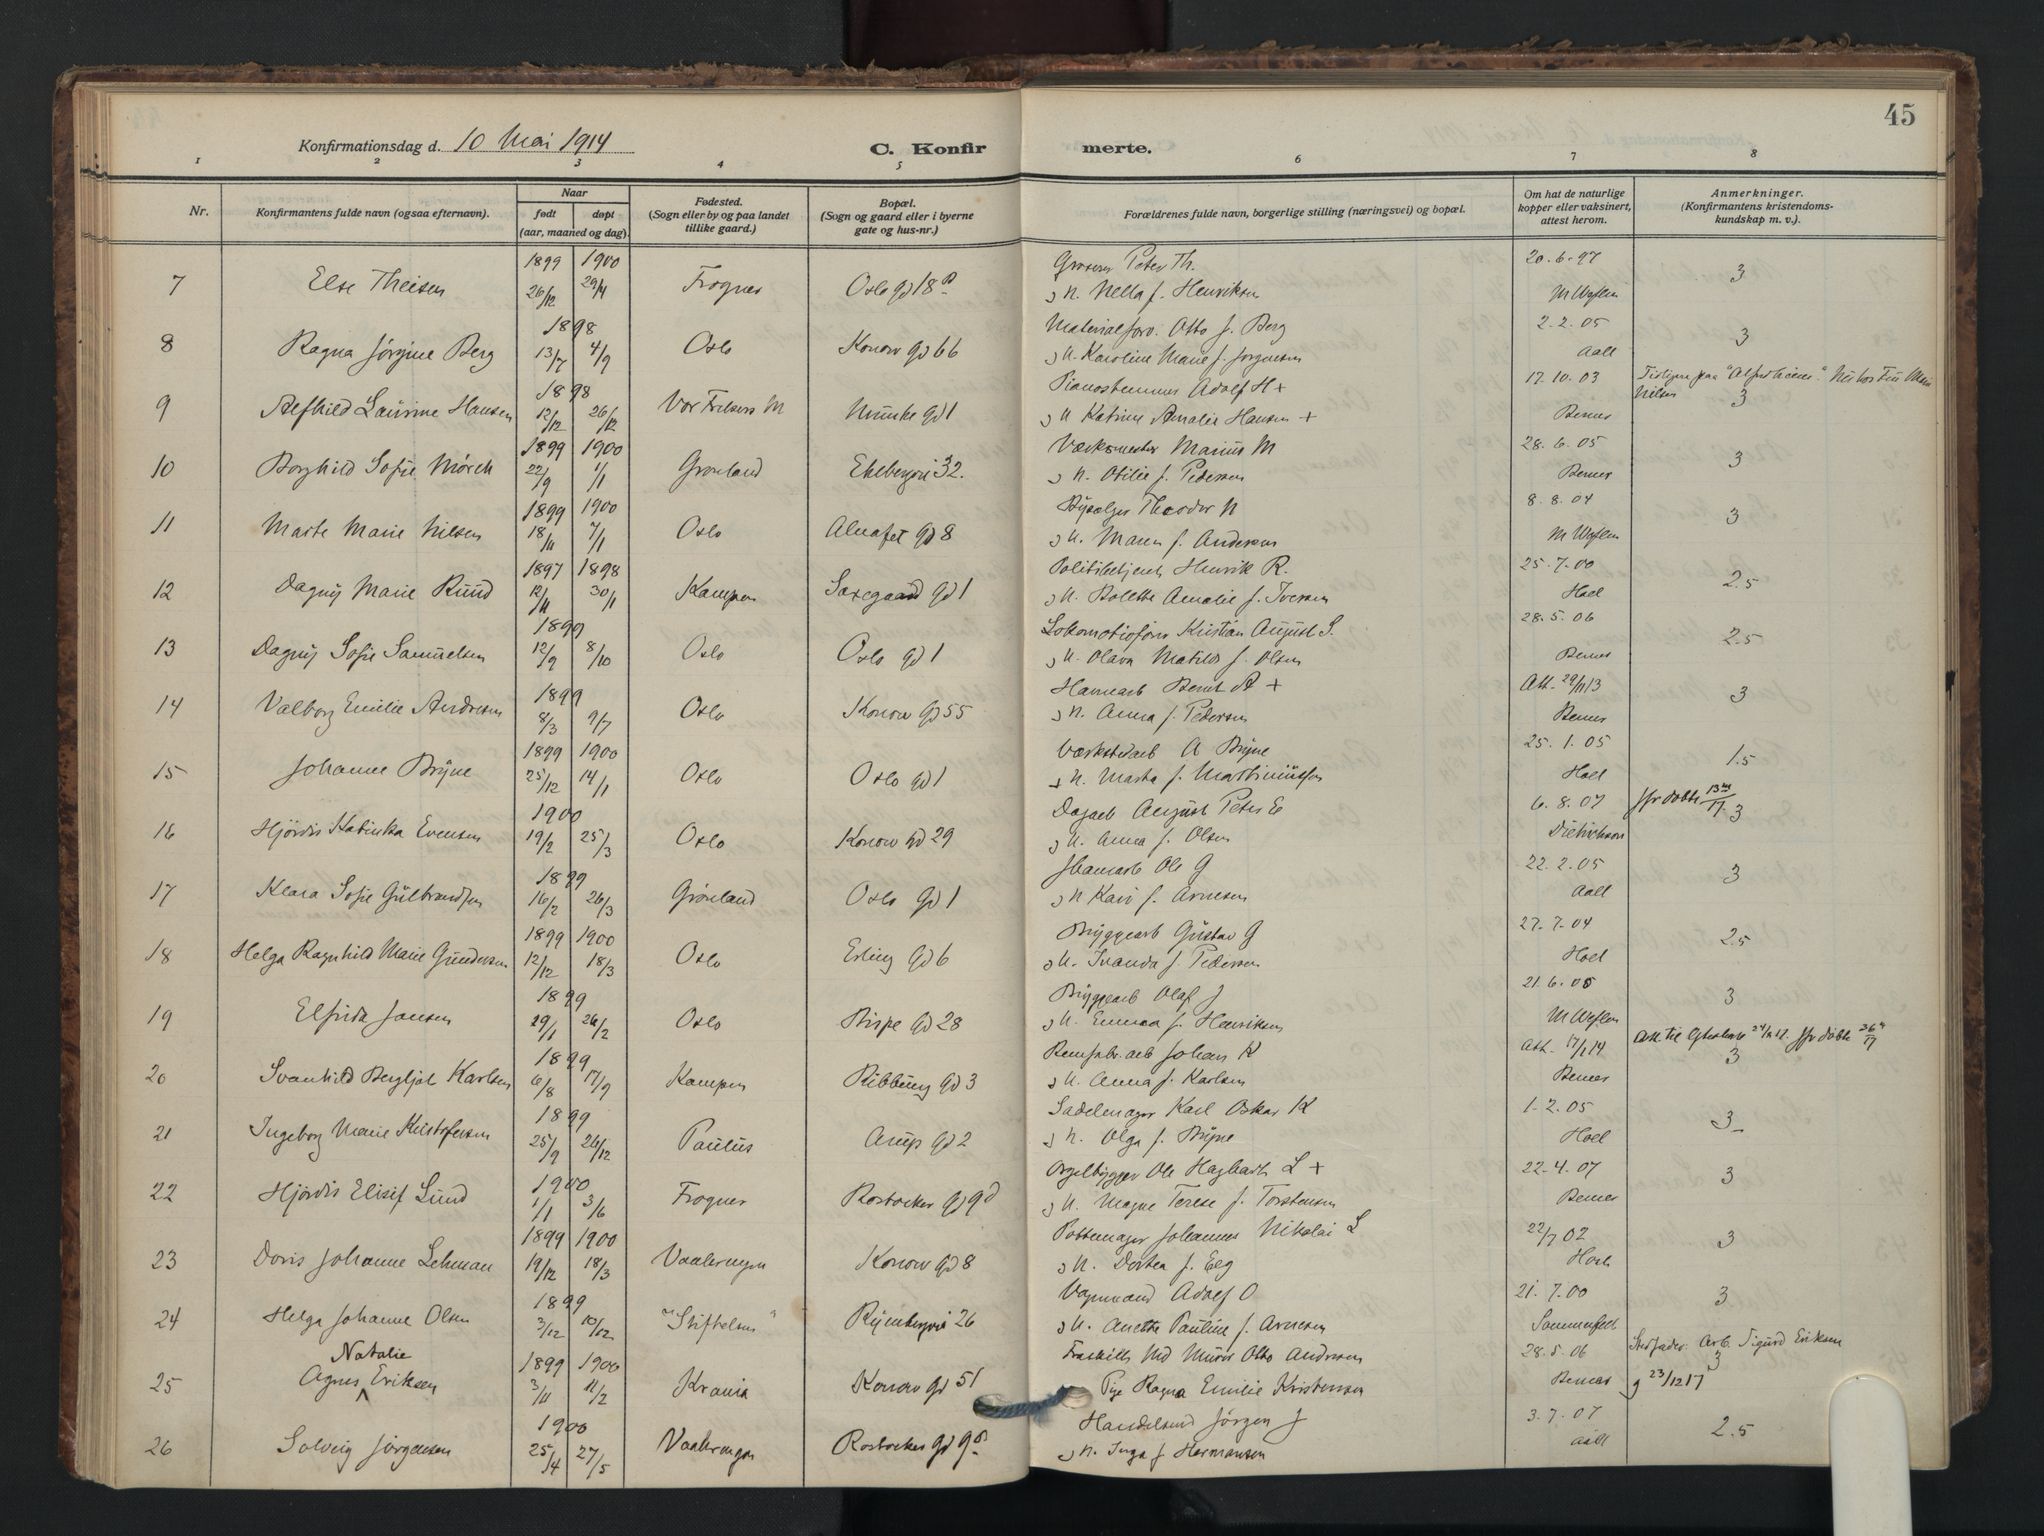 45
Konfirmationsdag d. 10 Mai 1914
C. Konfirmerte.
1 2 3 4 5 6 7 8
Nr. Konfirmantens fulde navn (ogsaa efternavn). Naar født døpt (aar, maaned og dag). Fødested. (Sogn eller by og paa landet tillike gaard.) Bopæl. (Sogn og gaard eller i byerne gate og hus-nr.) Forældrenes fulde navn, borgerlige stilling (næringsvei) og bopæl. Om hat de naturlige kopper eller vaksinert, attest herom. Anmerkninger. (Konfirmantens kristendomskundskap m. v.).
7 Else Theisen 1899 26/12 1900 29/4 Frogner Oslo gd 18 B Grosserer Peter Th. 20.6.97 3
N. Nella f. Henriksen
8 Ragna Jörgine Berg 1898 13/7 4/9 Oslo Konow gd 66 Materialforv. Otto J. Berg 2.2.05 3
u. Karoline Marie f. Jorgensen Aall
9 Alfhild Laurine Hansen 1898 12/12 26/12 Vor Frelsers M Munke gd 1 Pianostemmer Adolf H + 17.10.03 3
u Katrine Amalie Hansen + Berner Nilsen
10 Borghild Sofie Mörch 1899 22/9 1900 1/1 Grønland Ekebergvei 32. Værksmester Marius M 28.6.05 3
u. Otilie f. Pedersen Berner
11 Marte Marie Nilsen 1899 18/11 1900 7/1 Oslo Alnafet gd 8 Byselger Theodor N 8.8.04 3
u. Maren f. Andersen
12 Dagny Marie Ruud 1897 12/11 1898 30/1 Kampen Saxegaard gd 1 Politibetjent Henrik R. 25.7.00 2.5
u. Bolette Amalie f. Iversen Hoel
13 Dagny Sofie Samuelsen 1899 12/9 8/10 Oslo Oslo gd 1 Kristian August S. 28.5.06 2.5
u. Olava Matilde f. Olsen Berner
14 Valborg Emilie Andresen 1899 8/3 9/7 Oslo Konow gd 55 Havnearb Bernt A + Att. 29/11 13 3
u. Anna f. Pedersen Berner
15 Johanne Bryne 1899 25/12 1900 14/1 Oslo Oslo gd 1 Værkstedarb A Bryne 25.1.05 1.5
u. Marta f. Martiniussen Hoel
16 Hjördis Katinka Evensen 1900 19/2 25/3 Oslo Konow gd 29 Dagarb August Peter E 6.8.07 3
u. Anna f. Olsen Dietrichson
17 Klara Sofie Gulbrandsen 1899 16/2 26/3 Grönland Oslo gd 1 Ole G 22.2.05 3
u Kari f. Arnesen Aall
18 Helga Ragnhild Marie Gundersen 1899 12/12 1900 18/3 Oslo Erling gd 6 Bryggearb Gustav G 27.7.04 2.5
u. Ivanda f. Pedersen Hoel
19 Elfrida Jansen 1899 29/1 26/2 Oslo Bispe gd 28 Bryggearb Olaf J 21.6.05 3
u. Emma f. Henriksen
20 Svanhild Bergljot Karlsen 1899 6/8 17/9 Kampen Ribbung gd 3 Johan K Att. 17/1 14 3
u. Anna f. Karlsen Berner
21 Ingeborg Marie Kristofersen 1899 25/9 26/12 Paulus Arup gd 2 Sadelmager Karl Oskar K 1.2.05 3
u. Olga f. Bryne Hoel
22 Hjördis Elisif Lund 1900 1/1 3/6 Frogner Rostocker gd 9 d Orgelbygger Ole Hagbart L + 22.4.07 3
u. Magna Terese f. Torstensen Berner
23 Doris Johanne Lehman 1899 19/12 1900 18/3 Vaalerengen Konow gd 8 Pottemager Johannes Nikolai L 22/7 02 3
u. Dortea f. Eeg
24 Helga Johanne Olsen 1899 3/12 10/12 "Stiftelsen" Ryenbergvei 26 Vognmand Adolf O 21.7.00 3
u. Anette Pauline f. Arnesen Sommerfelt
25 Agnes Natalie Eriksen 1899 3/11 1900 11/2 Krania Konow gd 51 Fraskilt Otto Andresen 28.5.06 Stedfader: Arb. Sigurd Eriksen 3
Pige Ragna Emilie Kristensen Berner g 23/12 17
26 Solveig Jörgensen 1900 25/4 27/5 Vaalerengen Rostocker gd 9 Jörgen J 3.7.07 2.5
u. Inga f Hermansen Aall